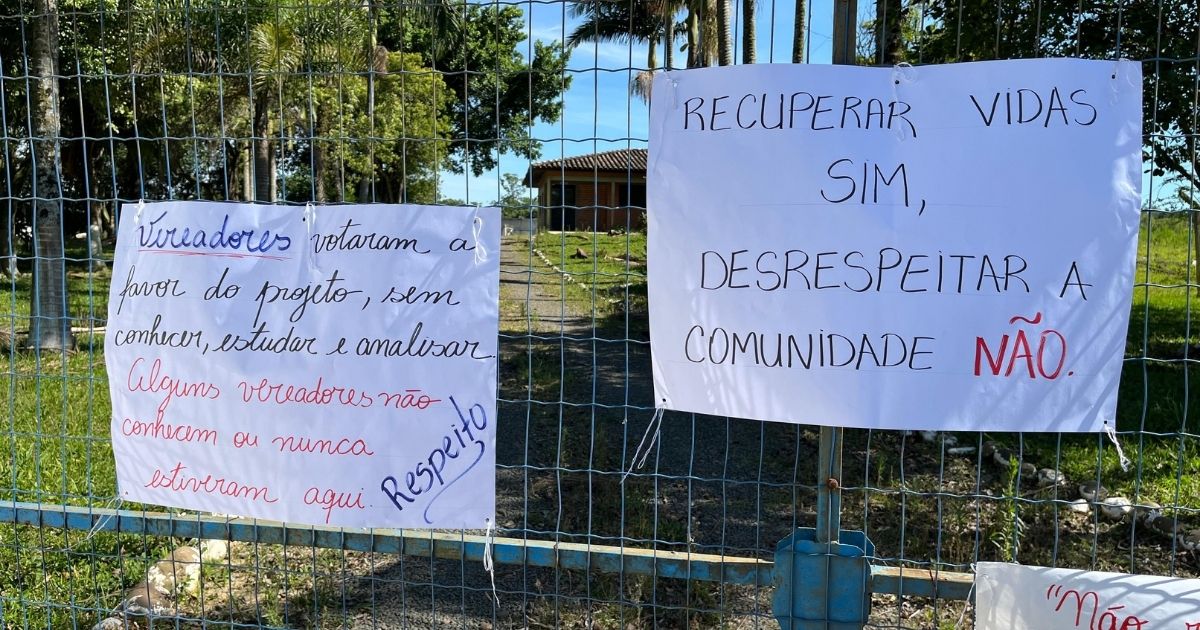 Vereadores votaram a
favor do projeto, sem
conhecer, estudar e analisar.
Alguns vereadores não
conhecem ou nunca
estiveram aqui.
Respeito
RECUPERAR VIDAS
SIM,
DESRESPEITAR A
COMUNIDADE NÃO.
"Não